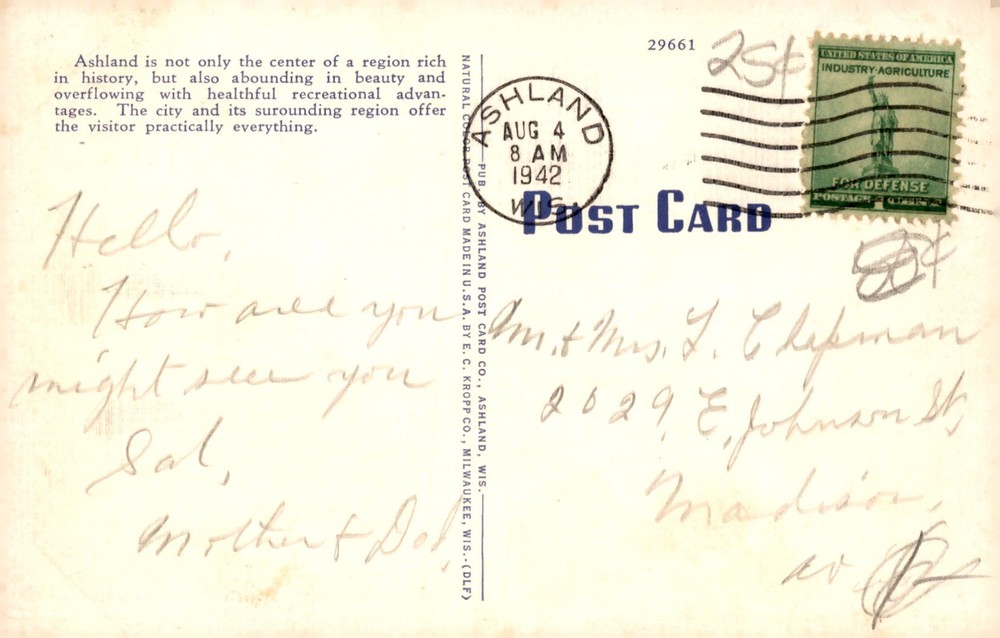 29661
25¢
UNITED STATES OF AMERICA
INDUSTRY·AGRICULTURE
FOR DEFENSE
POSTAGE
Ashland is not only the center of a region rich
in history, but also abounding in beauty and
overflowing with healthful recreational advan-
tages. The city and its surounding region offer
the visitor practically everything.
NATURAL COLOR POST CARD MADE IN U.S.A. BY E. C. KROPP CO., MILWAUKEE, WIS.-(DLF)
PUB. BY ASHLAND POST CARD CO., ASHLAND, WIS.
ASHLAND
AUG 4
8 AM
1942
WIS.
POST CARD
Hello,
How are you
might see you
Sat,
Mother &
Mr. & Mrs. L. Chapman
2029, E. Johnson St,
Madison,